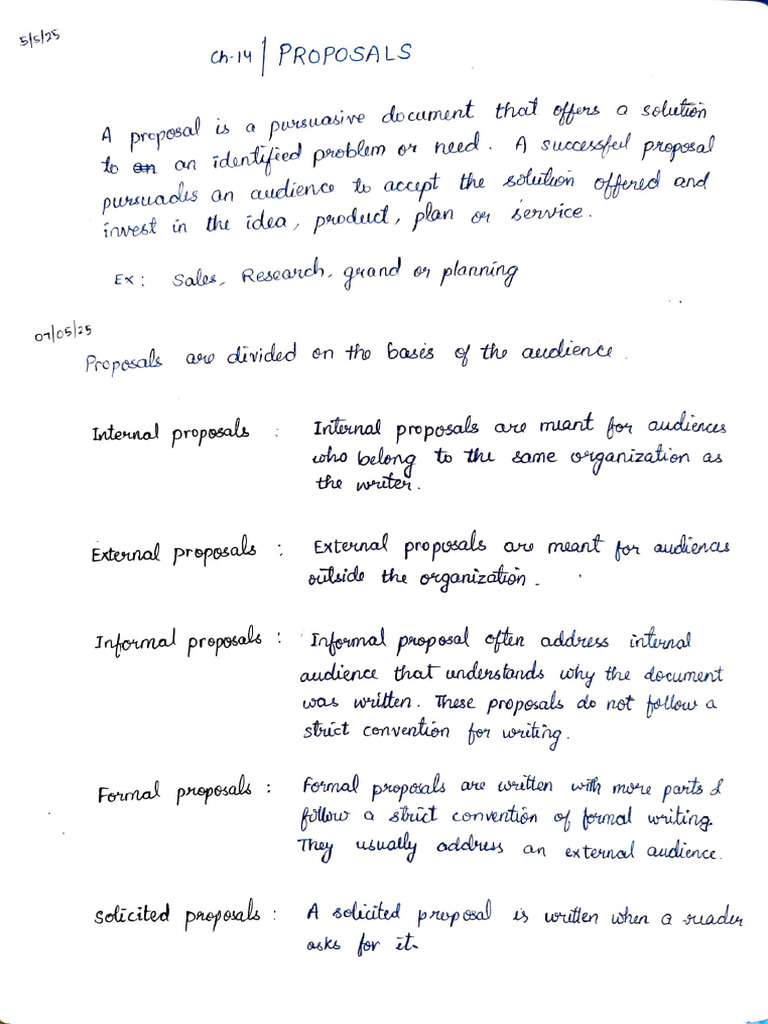 5/5/25
Ch-14 | PROPOSALS
A proposal is a pursuasive document that offers a solution
to an an identified problem or need. A successful proposal
pursuades an audience to accept the solution offered and
invest in the idea, product, plan or service.
Ex: Sales, Research, grand or planning
07/05/25
Proposals are divided on the basis of the audience.
Internal proposals : Internal proposals are meant for audiences
who belong to the same organization as
the writer.
External proposals : External proposals are meant for audiences
outside the organization.
Informal proposals : Informal proposal often address internal
audience that understands why the document
was written. These proposals do not follow a
strict convention for writing.
Formal proposals : Formal proposals are written with more parts &
follow a strict convention of formal writing.
They usually address an external audience.
Solicited proposals : A solicited proposal is written when a reader
asks for it.